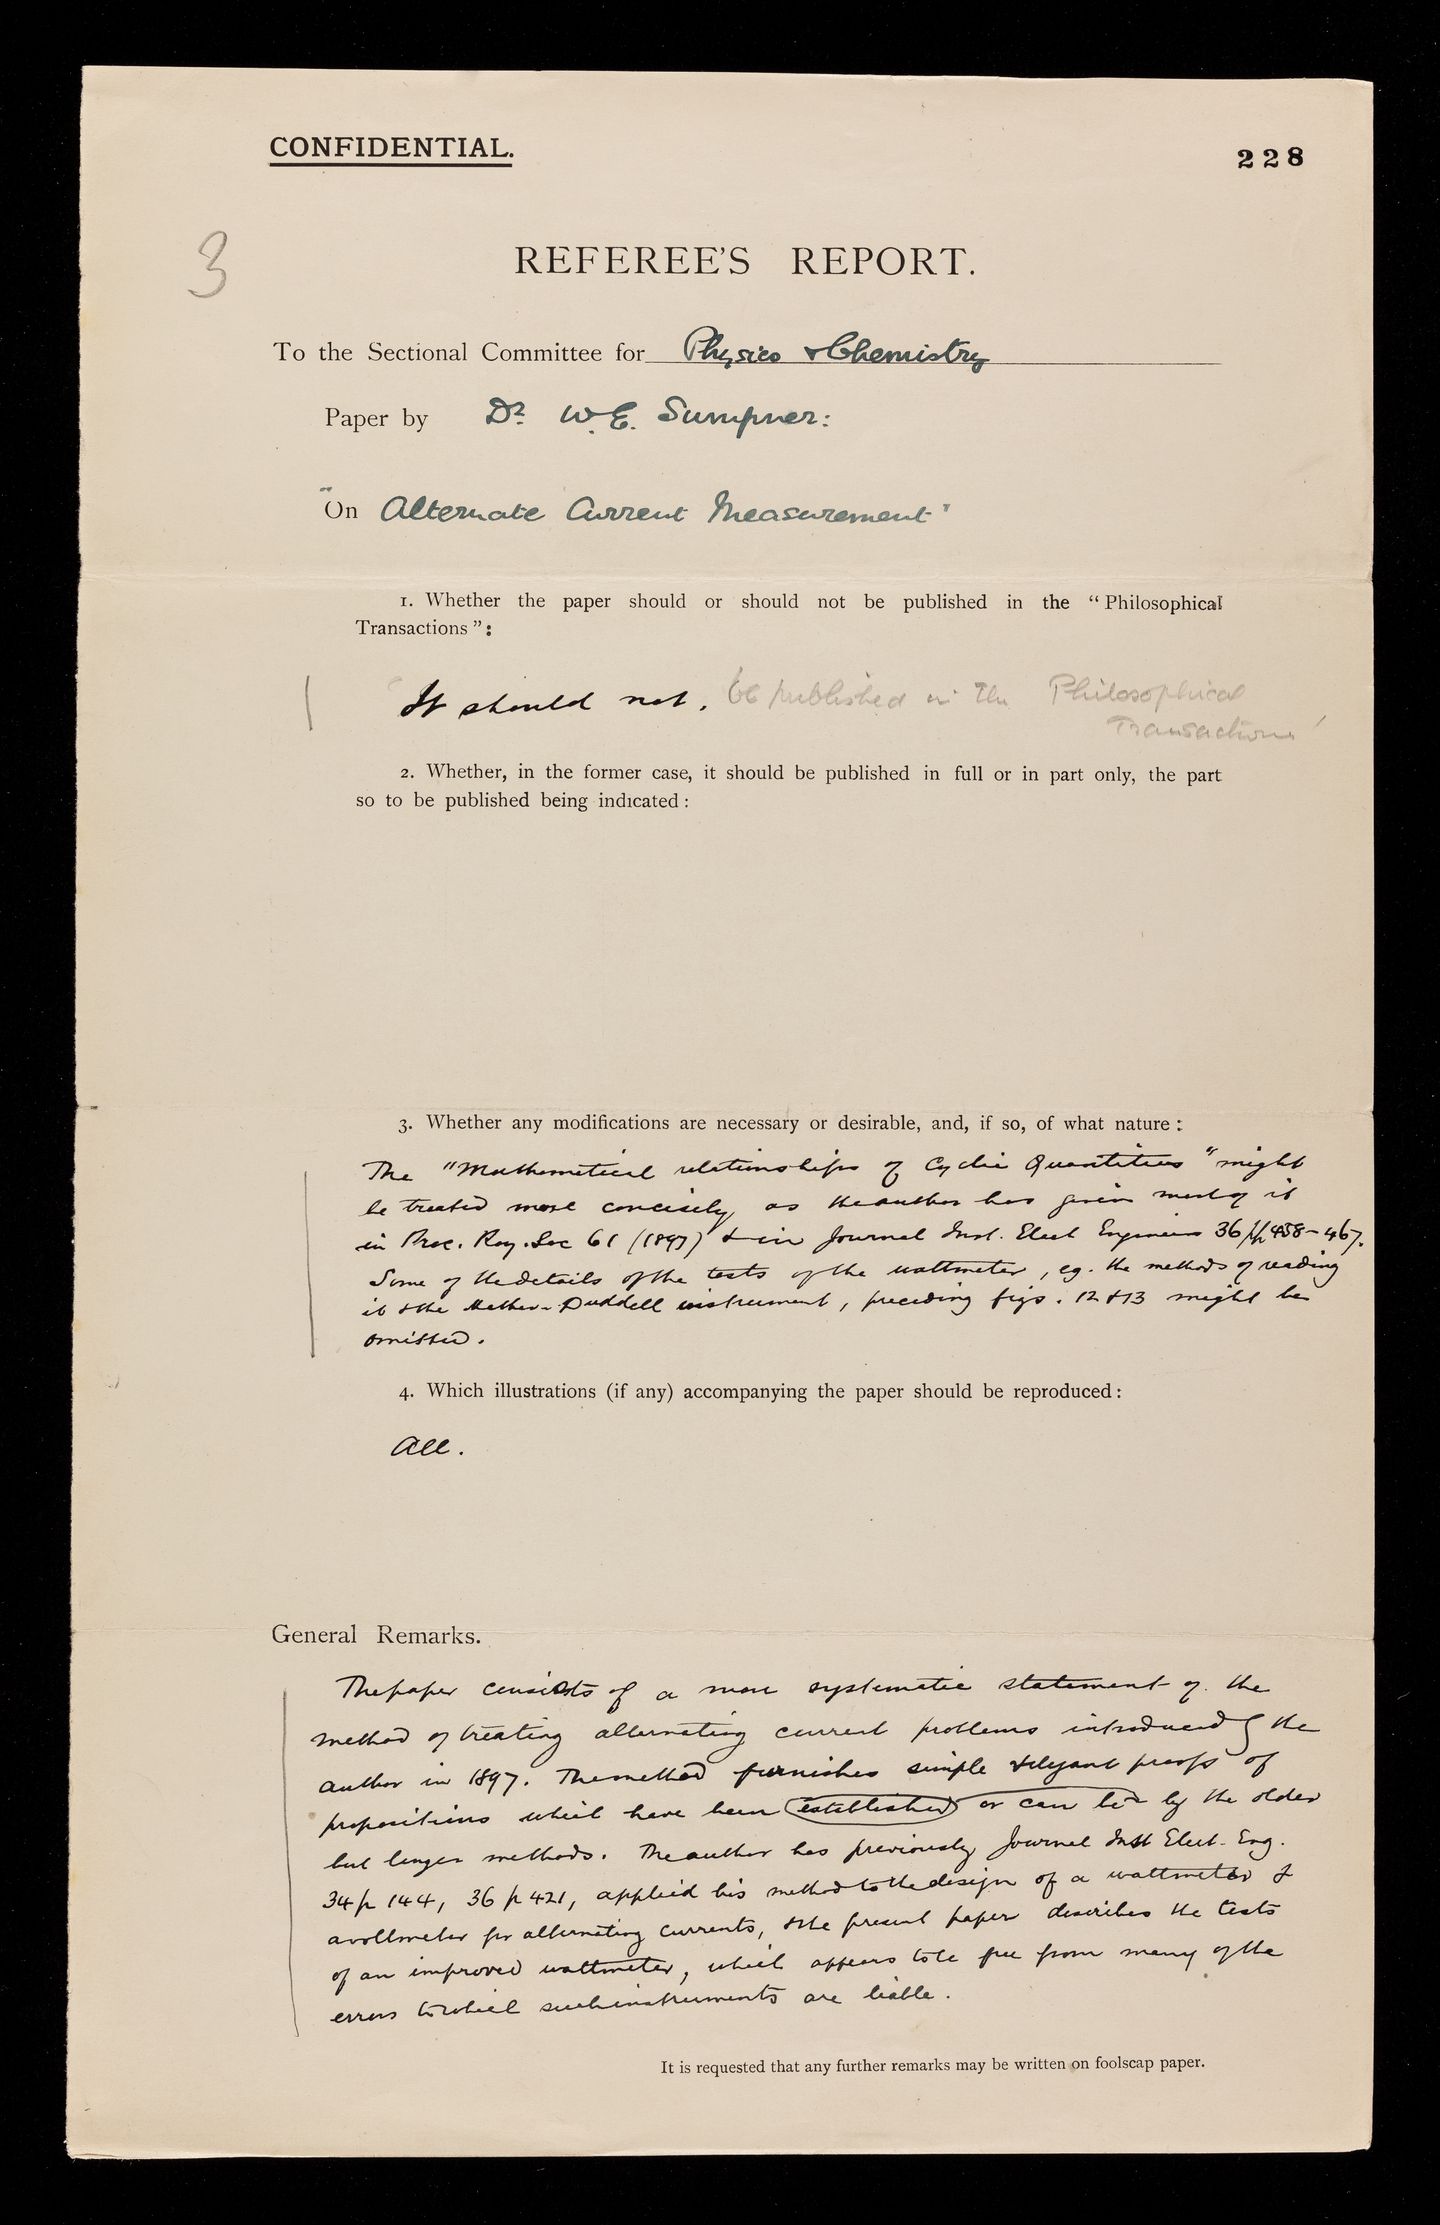 CONFIDENTIAL.
228
3
REFEREE'S REPORT.
To the Sectional Committee for Physics & Chemistry
Paper by Dr. W. E. Sumpner:
"On Alternate Current Measurement"
1. Whether the paper should or should not be published in the "Philosophical
Transactions":
It should not. be published in the Philosophical
Transactions
2. Whether, in the former case, it should be published in full or in part only, the part
so to be published being indicated:
3. Whether any modifications are necessary or desirable, and, if so, of what nature:
The "Mathematical relationships of Cyclic Quantities" might
be treated more concisely as the author has given most of it
in Proc. Roy. Soc 61 (1897) & in Journal Inst. Elect Engineers 36 pp 458-467.
Some of the details of the tests of the wattmeter, eg. the methods of reading
it & the Mather-Duddell instrument, preceding figs. 12 & 13 might be
omitted.
4. Which illustrations (if any) accompanying the paper should be reproduced:
All.
General Remarks.
The paper consists of a more systematic statement of the
method of treating alternating current problems introduced by the
author in 1897. The method furnishes simple & elegant proofs of
propositions which have been established or can be by the older
but longer methods. The author has previously, Journal Inst Elect. Eng.
34 p 144, 36 p 421, applied his method to the design of a wattmeter &
a voltmeter for alternating currents, & the present paper describes the tests
of an improved wattmeter, which appears to be free from many of the
errors to which such instruments are liable.
It is requested that any further remarks may be written on foolscap paper.